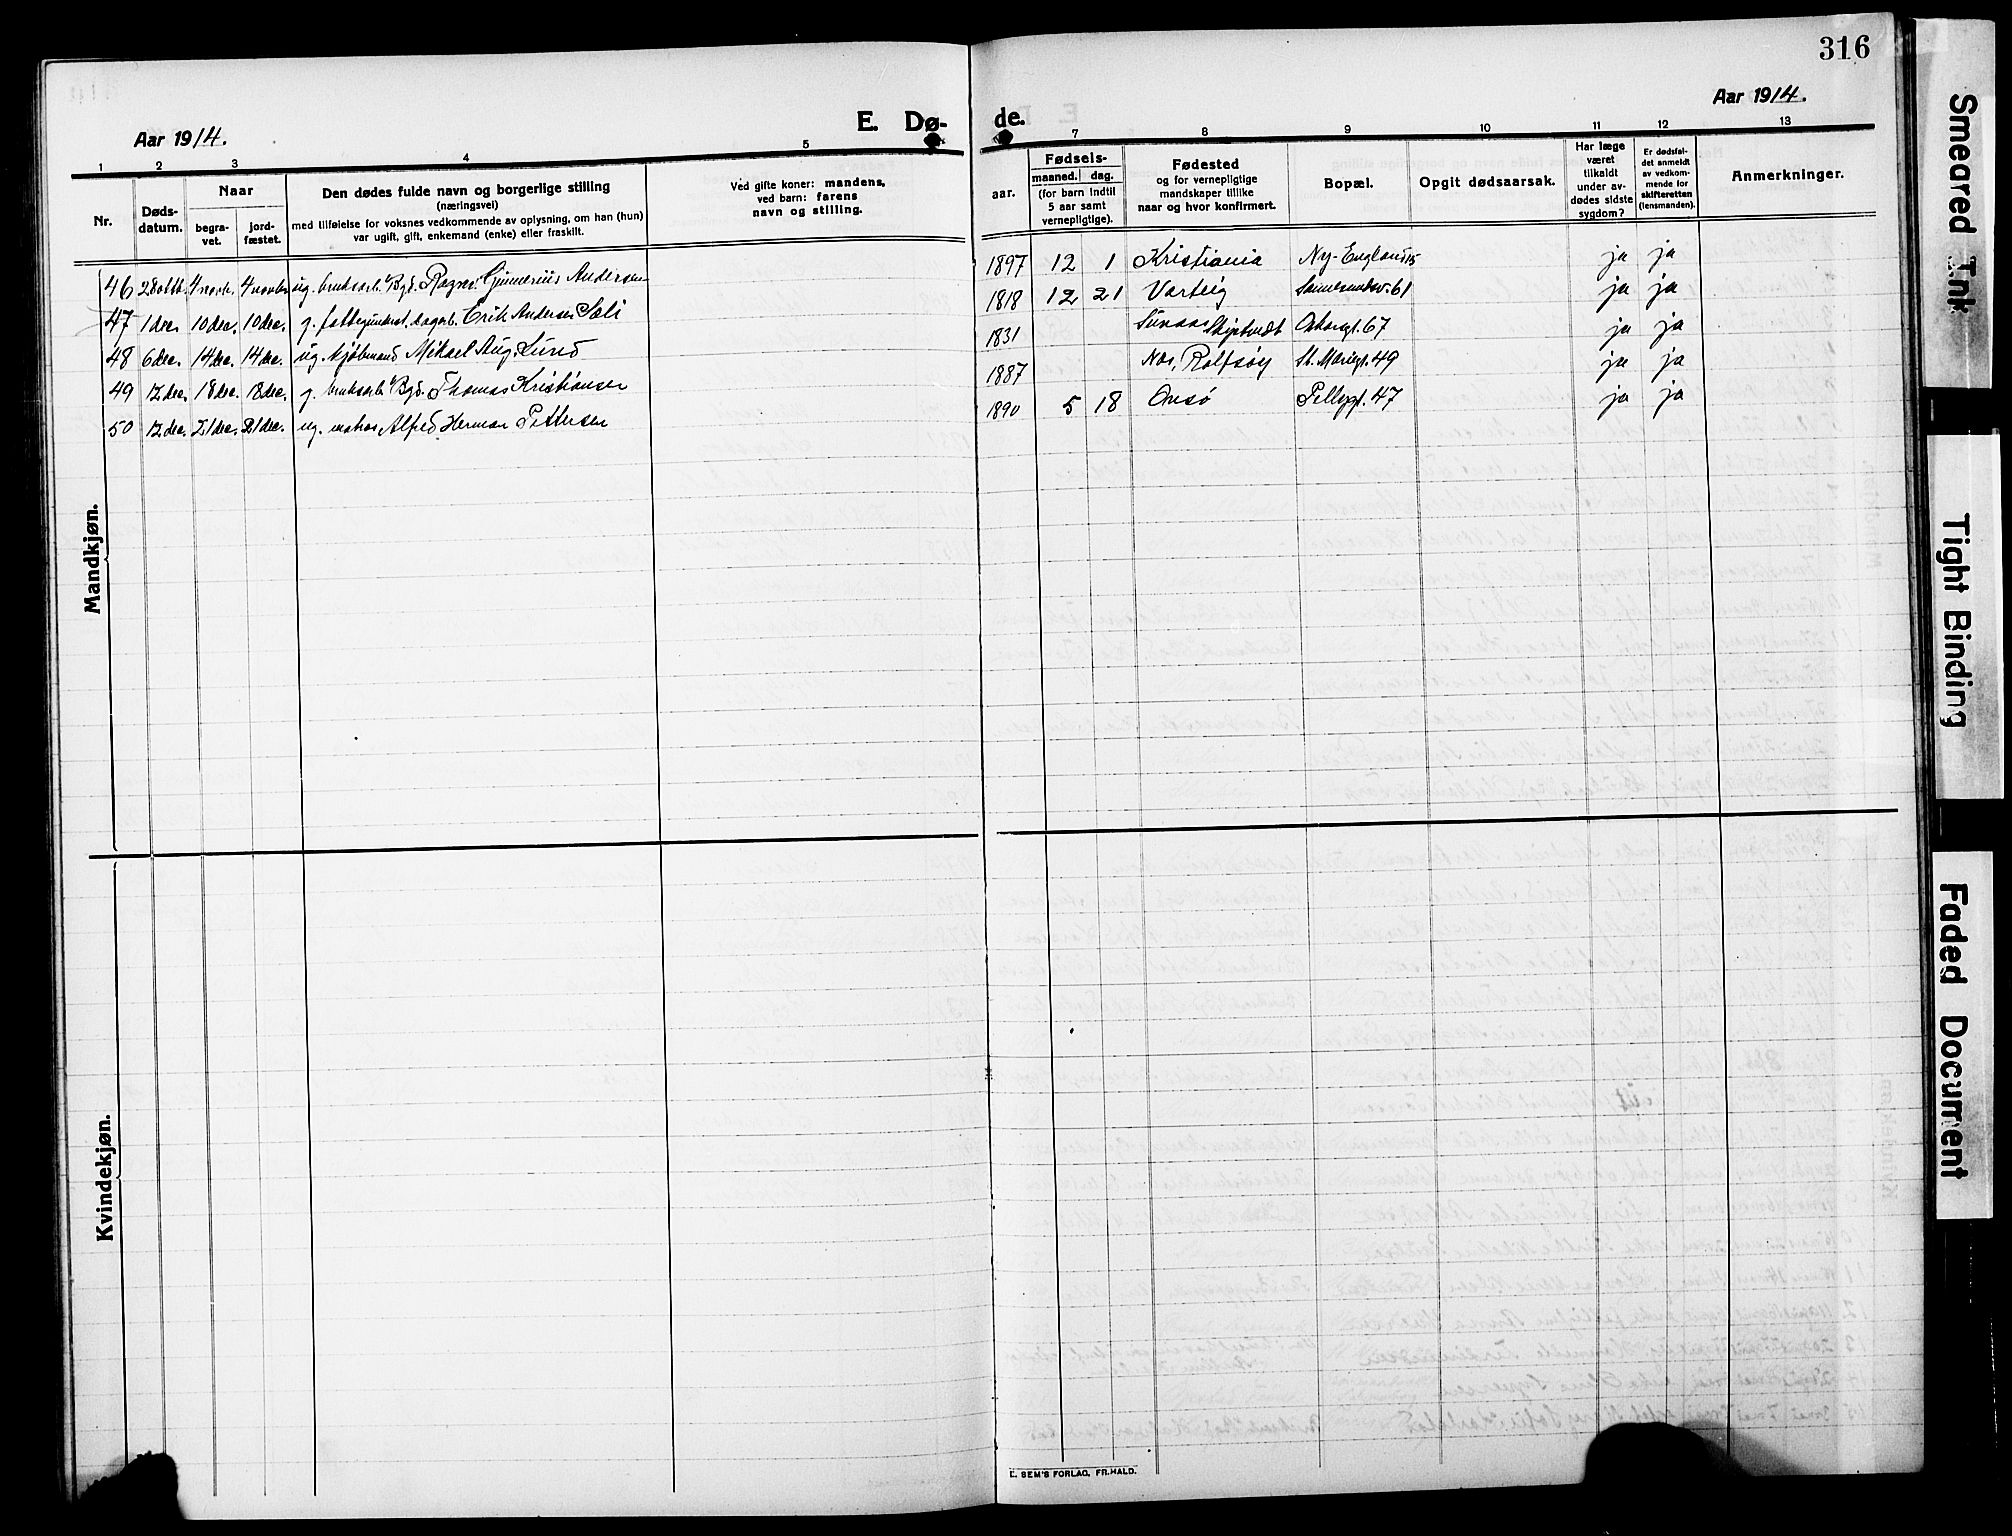 316
Aar 1914.
E. Dø-
de.
Aar 1914.
1 2 3 4 5 7 7 8 9 10 11 12 13
Nr.
Døds-
datum.
Naar
begra-
vet.
jord-
fæstet.
Den dødes fulde navn og borgerlige stilling
(næringsvei)
med tilføielse for voksnes vedkommende av oplysning, om han (hun)
var ugift, gift, enkemand (enke) eller fraskilt.
Ved gifte koner: mandens,
ved barn: farens
navn og stilling.
aar.
Fødsels-
maaned. dag.
(for barn indtil
5 aar samt
vernepligtige).
Fødested
og for vernepligtige
mandskaper tillike
naar og hvor konfirmert.
Bopæl.
Opgit dødsaarsak.
Har læge
været
tilkaldt
under av-
dødes sidste
sygdom?
Er dødsfal-
det anmeldt
av vedkom-
mende for
skifteretten
(lensmanden).
Anmerkninger.
46 28 oktb. 4 novb. 4 novbr ug. bruksarb. Byd. Ragnar Gunnerius Andersen 1897 12 1 Kristiania Ny-England 15 ja ja
47 1 dec. 10 dec. 10 dec. g. fattigunderst. dagarb. Erik Andersen Sæli 1818 12 21 Varteig 61 ja ja
48 6 dec. 14 dec. 14 dec. ug. kjøbmand Mikael Aug. Lund 1831 Skiptvedt 67 ja ja
49 12 dec. 18 dec. 18 dec. g. bruksarb. Byd. Thomas Kristiansen 1887 Nes, Rolfsøy St. Mariegt. 49 ja ja
50 12 dec. 21 dec. 21 dec. ug. matros Alfred Herman Pettersen 1890 5 18 Onsø 47 ja ja
Mandkjøn.
Kvindekjøn.
E. SEM'S FORLAG, FR.HALD.
Smeared Ink
Tight Binding
Faded Document